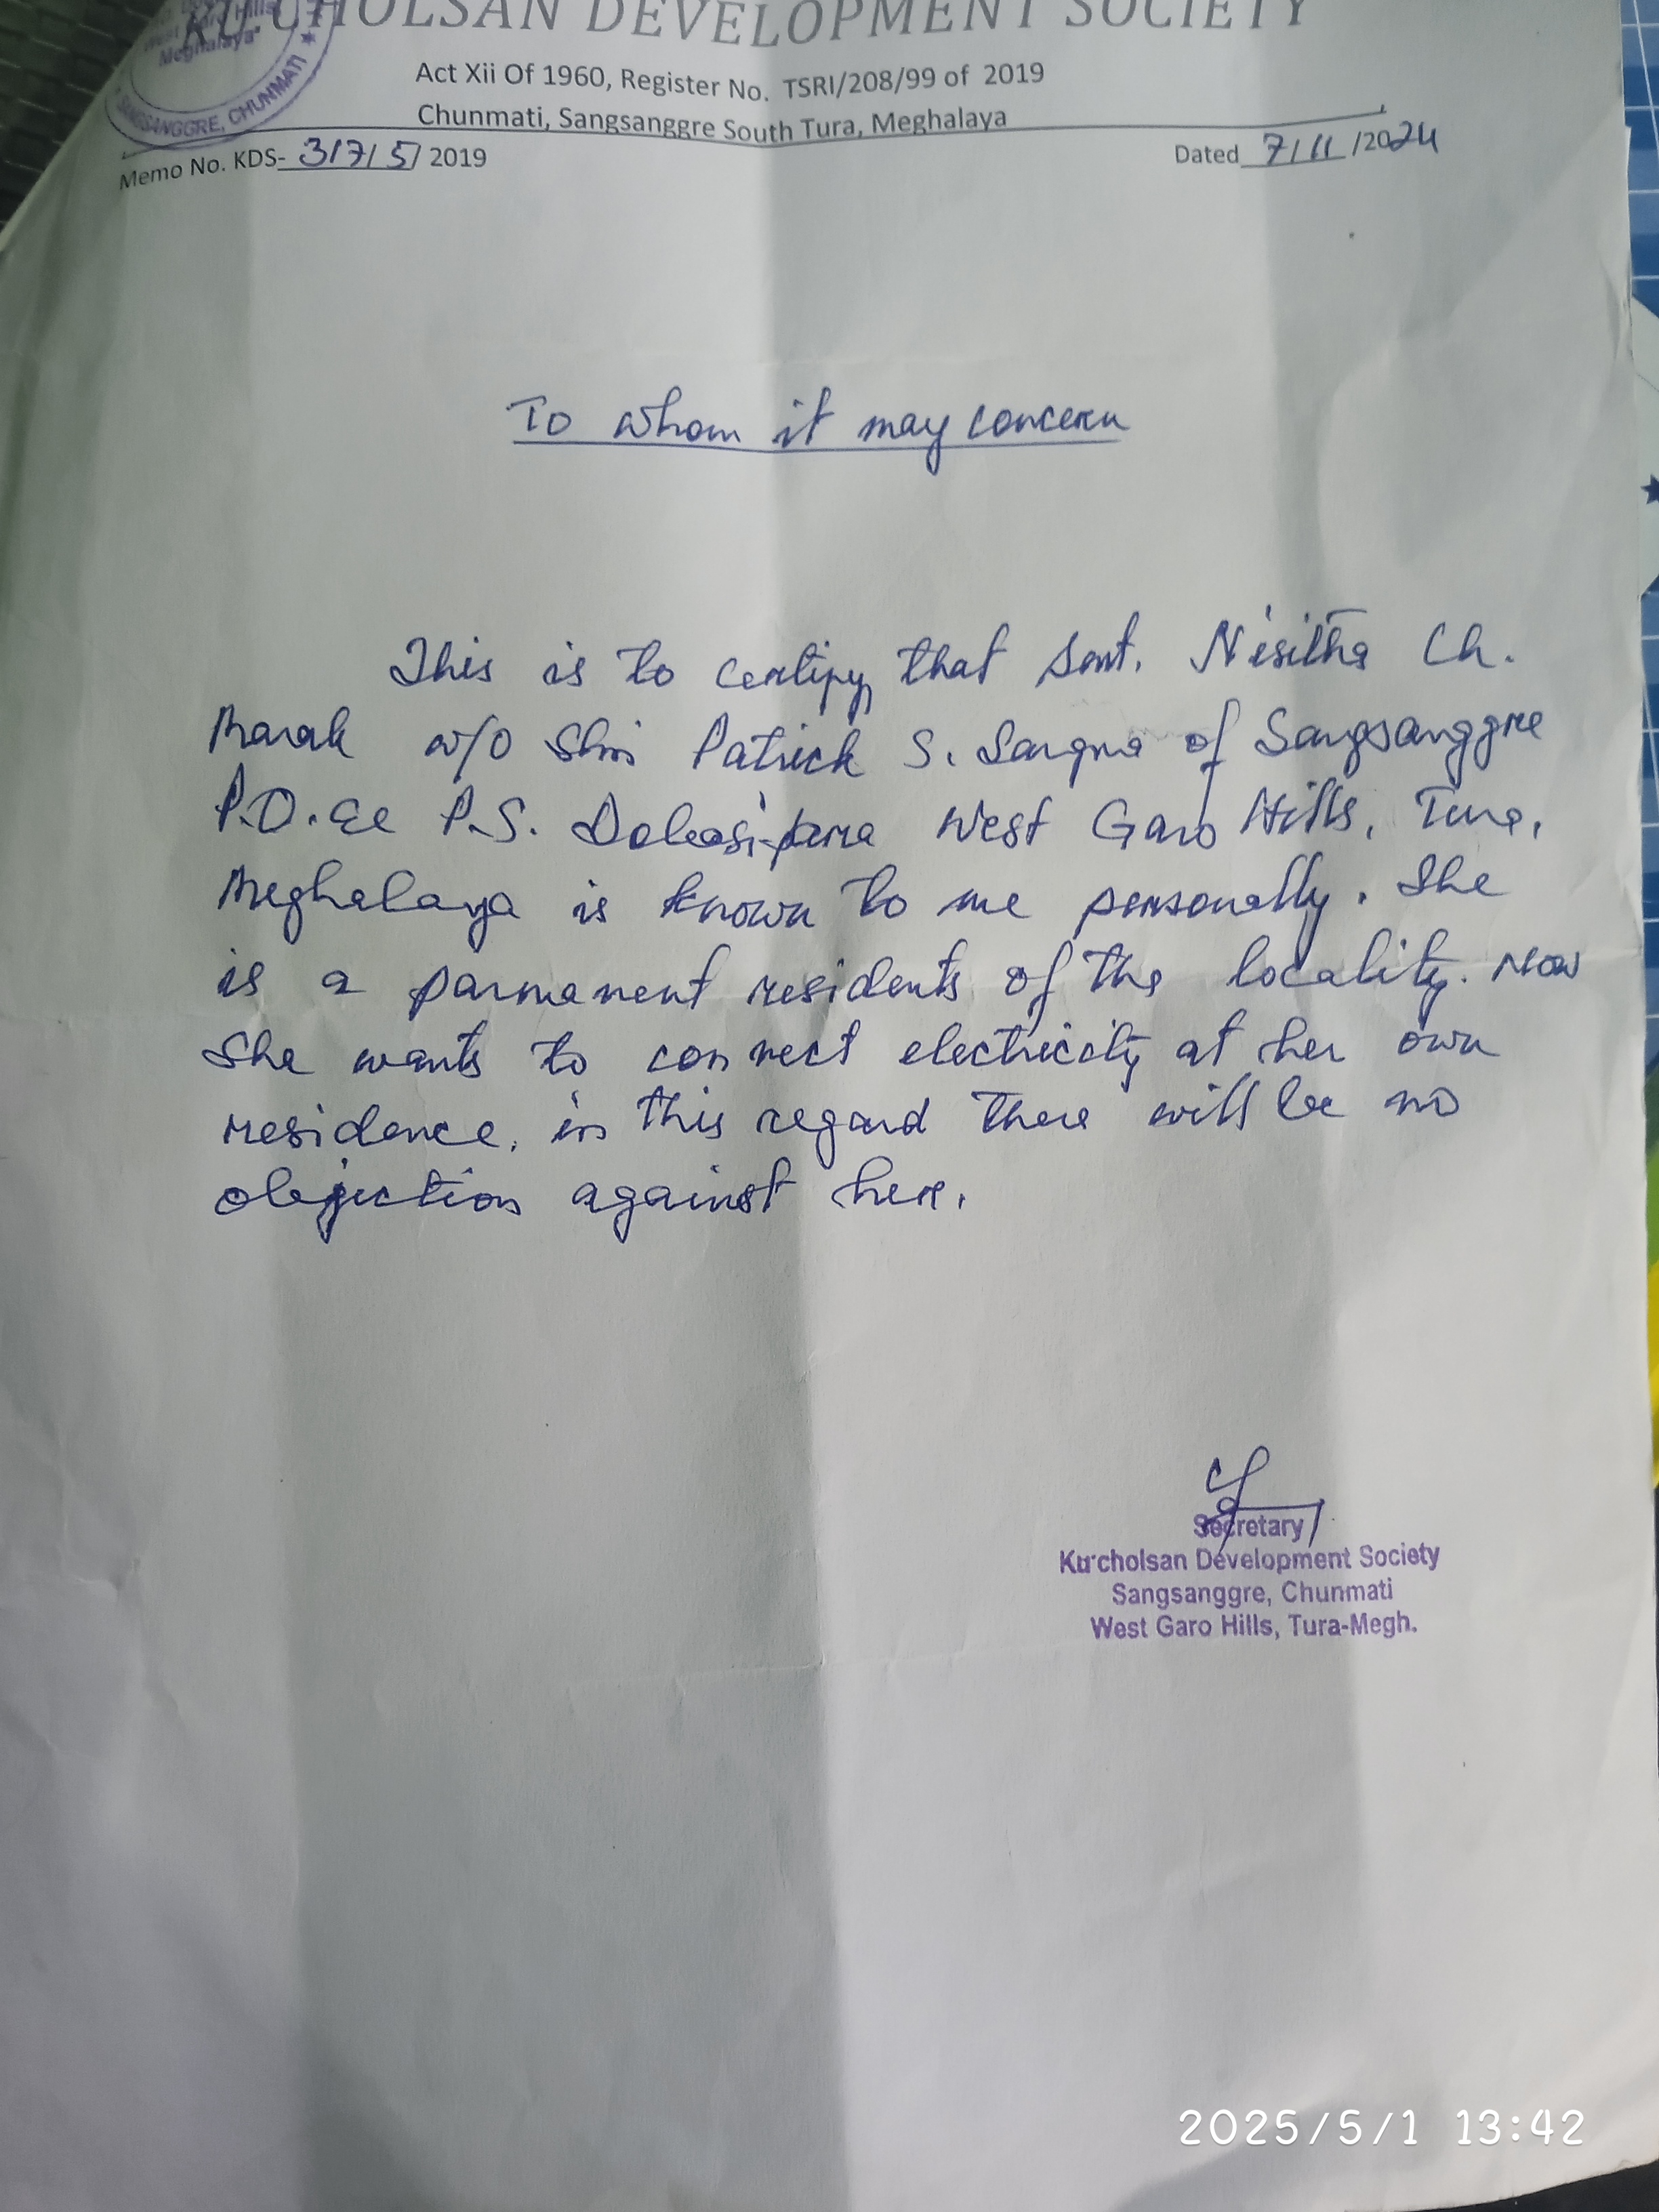 KU'CHOLSAN DEVELOPMENT SOCIETY
Garo Hills
Meghalaya"
SANGSANGGRE, CHUNMATI ★
Act Xii Of 1960, Register No. TSRI/208/99 of 2019
Chunmati, Sangsanggre South Tura, Meghalaya
Memo No. KDS- 3/7/5/ 2019
Dated 7/11/2024
To whom it may concern
This is to certify that Smt. Nisitha Ch.
Marak w/o Shri Patrick S. Sangma of Sangsanggre
P.O. & P.S. West Garo Hills, Tura,
Meghalaya is known to me personally. She
is a parmanent residents of the locality. Now
She wants to connect electricity at her own
residence, in this regard there will be no
objection against her.
Secretary
Ku'cholsan Development Society
Sangsanggre, Chunmati
West Garo Hills, Tura-Megh.
2025/5/1 13:42